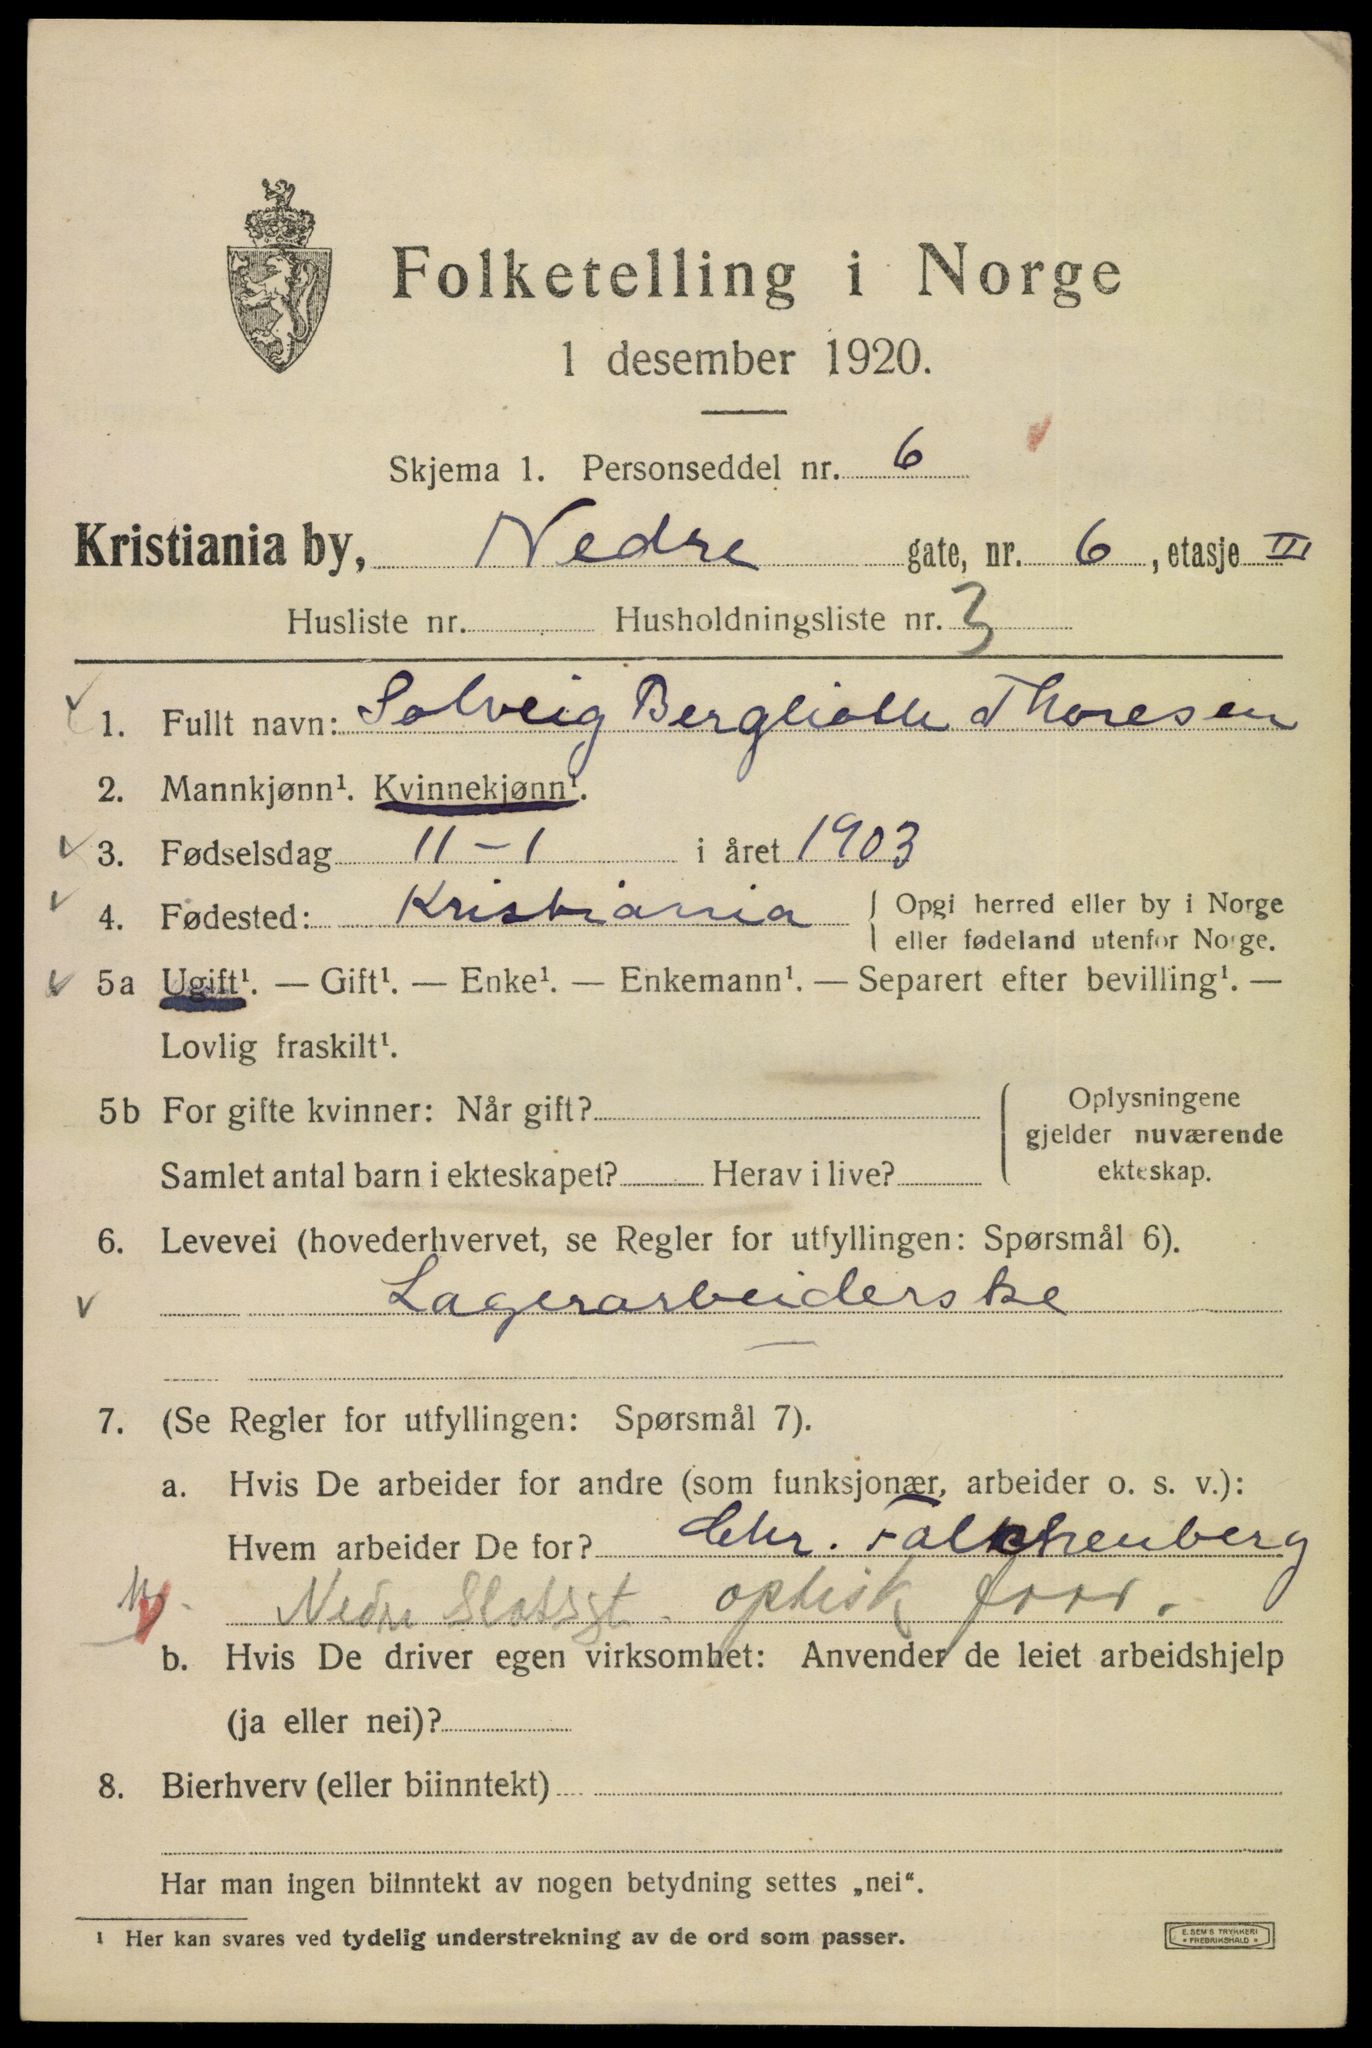 Folketelling i Norge
1 desember 1920.
Skjema 1. Personseddel nr. 6
Kristiania by, Nedre gate, nr. 6, etasje III
Husliste nr. Husholdningsliste nr. 3
1. Fullt navn: Solveig Bergliotte Thoresen
2. Mannkjønn¹. Kvinnekjønn¹.
3. Fødselsdag 11-1 i året 1903
4. Fødested: Kristiania
Opgi herred eller by i Norge
eller fødeland utenfor Norge.
5a Ugift¹. — Gift¹. — Enke¹. — Enkemann¹. — Separert efter bevilling¹. —
Lovlig fraskilt¹.
5b For gifte kvinner: Når gift?
Samlet antal barn i ekteskapet? Herav i live?
Oplysningene
gjelder nuværende
ekteskap.
6. Levevei (hovederhvervet, se Regler for utfyllingen: Spørsmål 6).
Lagerarbeiderske
7. (Se Regler for utfyllingen: Spørsmål 7).
a. Hvis De arbeider for andre (som funksjonær, arbeider o. s. v.):
Hvem arbeider De for? Chr. Falchenberg
Nedre Slotsgt. optisk
b. Hvis De driver egen virksomhet: Anvender de leiet arbeidshjelp
(ja eller nei)?
8. Bierhverv (eller biinntekt)
Har man ingen biinntekt av nogen betydning settes „nei“.
¹ Her kan svares ved tydelig understrekning av de ord som passer.
E. SEM'S TRYKKERI
* FREDRIKSHALD *